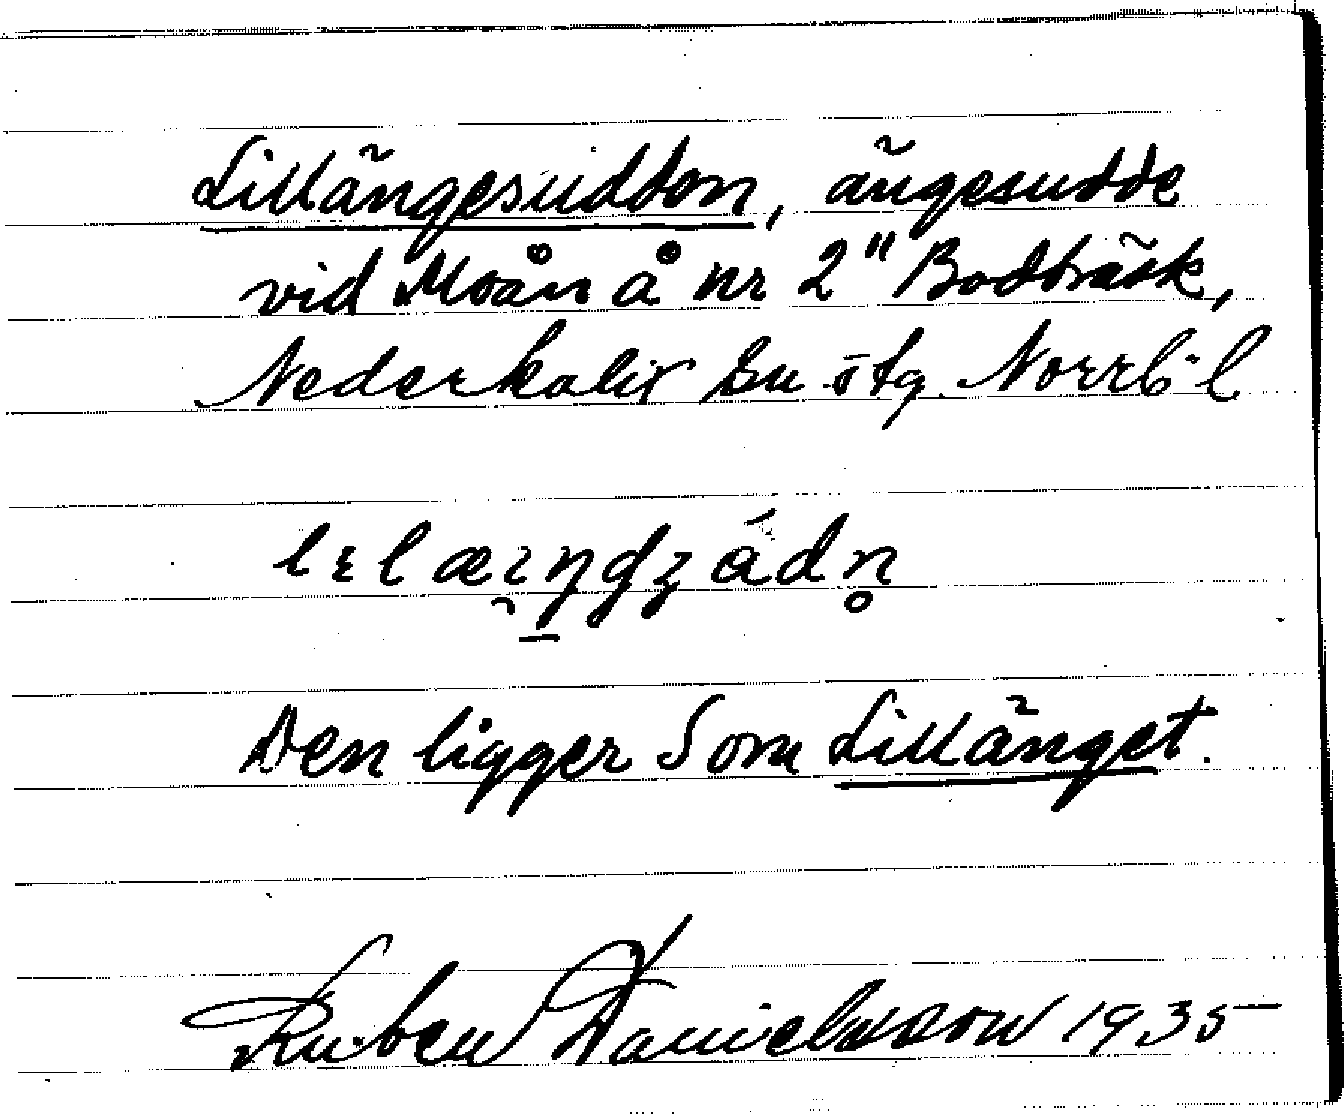 Lillängesudden, ängesudde
vid Moån å nr 2" Bodträsk,
Nederkalix sn ö tg. Norrb. l
Den ligger som Lillänget.
Ruben Danielsson 1935